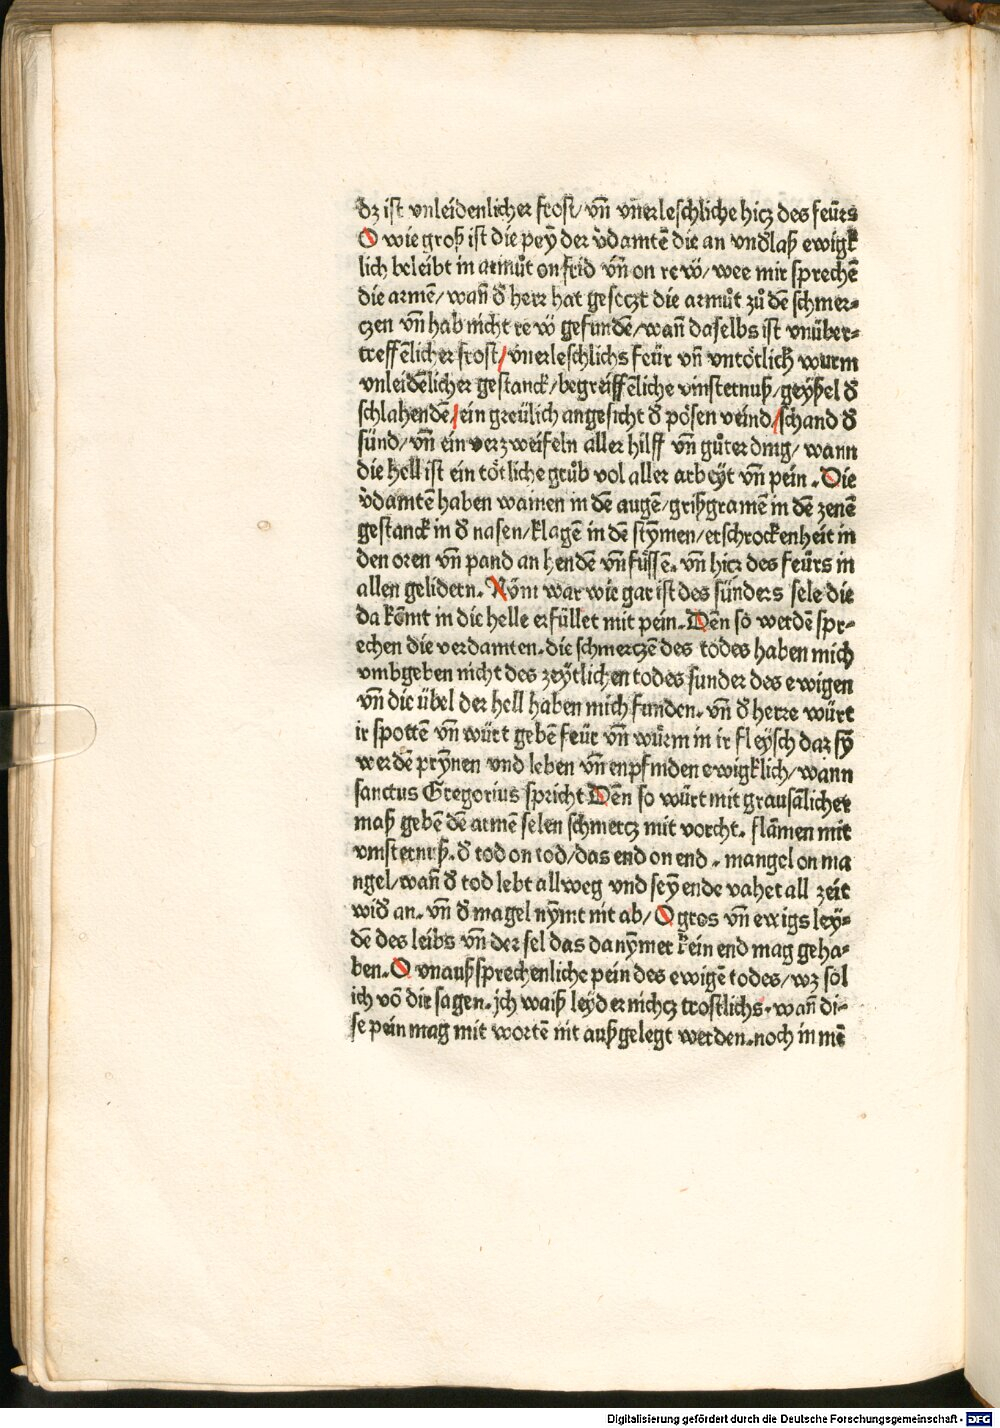 dz ist vnleidenlicher frost/ vn̄ vnerleschliche hicz des feürs
O wie groß ist die peȳ der v̉damtē die an vnd̕laß ewigk
lich beleibt in armůt on frid vn̄ on rew̎/ wee mir sprechē
die armē/ wan̄ d̕ herr hat geseczt die armůt zů dē schmer⸗
czen vn̄ hab nicht rew̎ gefundē/ wan̄ daselbs ist vnüber⸗
treffēlicher frost/ vnerleschlichs feür vn̄ vntötlich wurm
vnleidēlicher gestanck/ begreiffēliche vinsternuß/ geyßel d̕
schlahendē/ ein greülich angesicht d̕ pösen veind/ schand d̕
sünd/ vn̄ ein verzweifeln aller hilff vn̄ gůter ding/ wann
die hell ist ein tötliche grůb vol aller arbeÿt vn̄ pein. Die
v̉damtē haben wainen in dē augē/ grißgramē in dē zenē
gestanck in d̕ nasen/ klagē in dē stȳmen/ erschrockenheit in
den oren vn̄ pand an hendē vn̄ füssē. vn̄ hicz des feürs in
allen gelidern. Nȫm war wie gar ist des sünders sele die
da kōmt in die helle erfüllet mit pein. Dēn so werdē spr⸗
echen die verdamten. die schmerczē des todes haben mich
vmbgeben nicht des zeÿtlichen todes sunder des ewigen
vn̄ die übel der hell haben mich funden. vn̄ d̕ herre würt
ir spottē vn̄ würt gebē feür vn̄ würm in ir fleÿsch daz sÿ
werdē prȳnen vnd leben vn̄ enpfinden ewigklich/ wann
sanctus Gregorius spricht Dēn so würt mit grausālicher
maß gebē dē armē selen schmercz mit vorcht. flāmen mit
vinsternuß. d̕ tod on tod/ das end on end. mangel on ma
ngel/ wan̄ d̕ tod lebt allweg vnd seÿ ende vahet all zeit
wid̕ an. vn̄ d̕ magel nȳmt nit ab/ O gros vn̄ ewigs leÿ⸗
dē des leibs vn̄ der sel das da nȳmer kein end mag geha⸗
ben. O vnaußsprechenliche pein des ewigē todes/ wz sol
ich vō dir sagen. jch waiß leÿder nichcz trostlichs. wan̄ di⸗
se pein mag mit wortē nit außgelegt werden. noch in mē
Digitalisierung gefördert durch die Deutsche Forschungsgemeinschaft - DFG